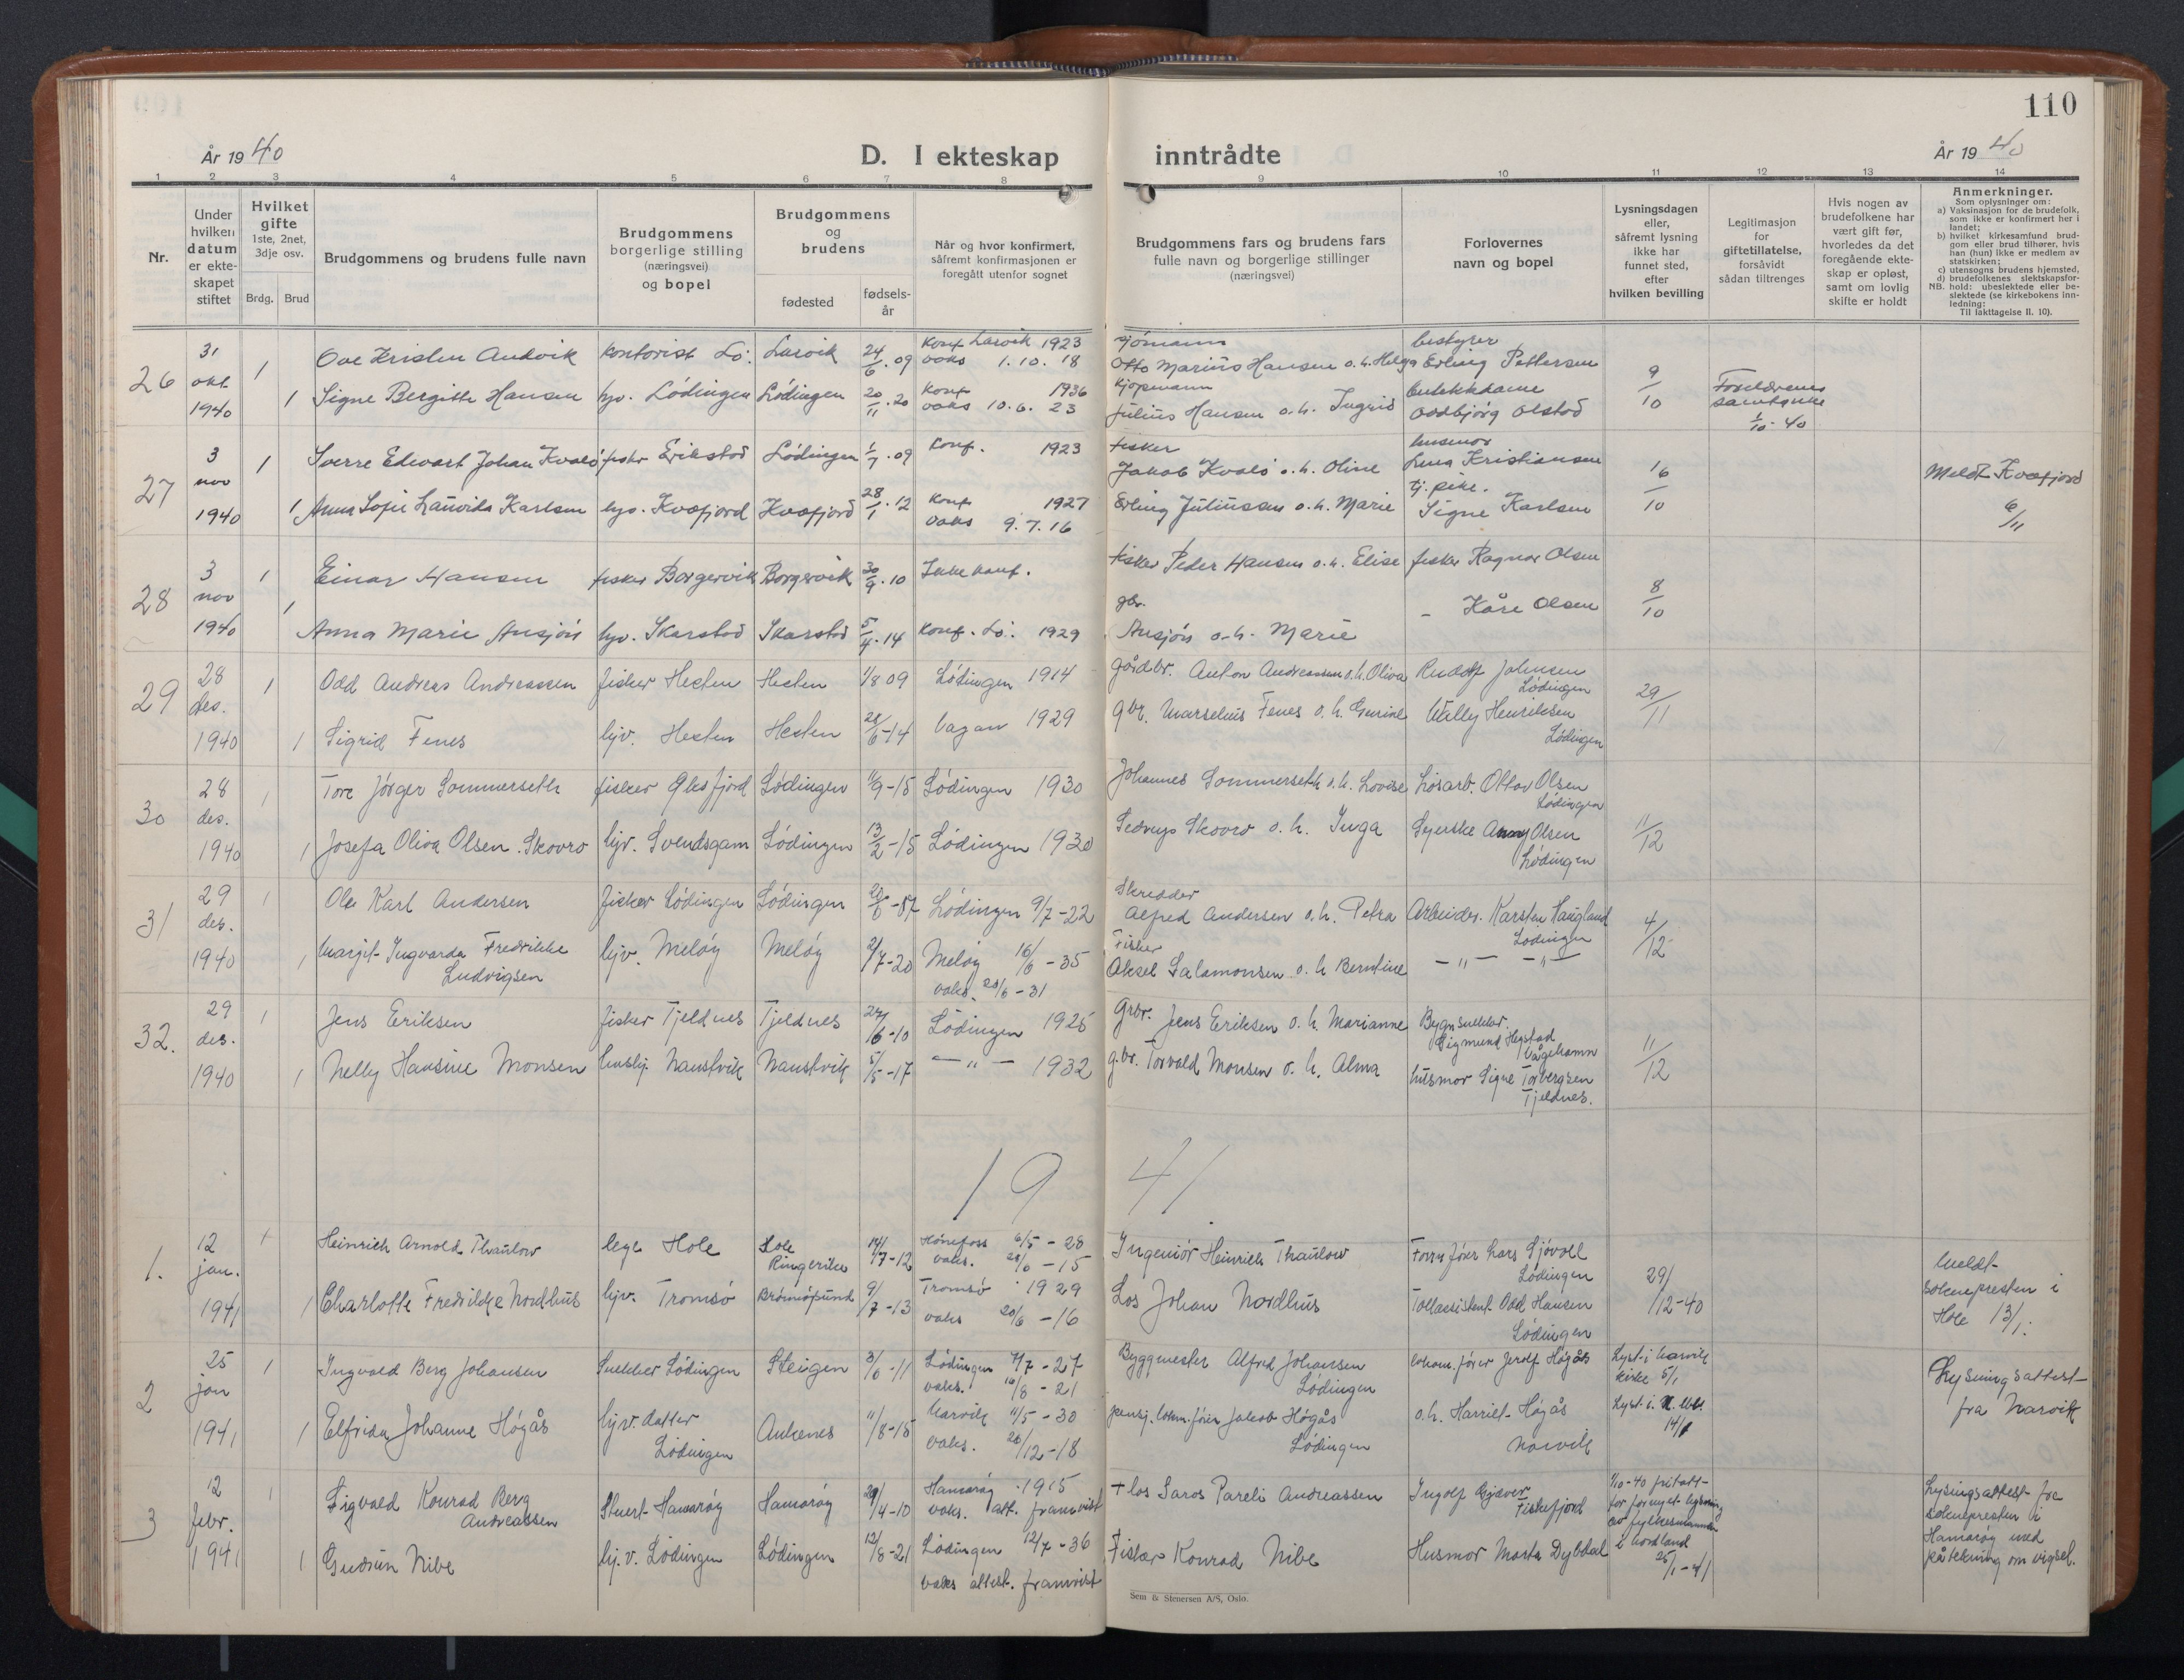 110
År 1940
D. I ekteskap inntrådte
År 1940
1 2 3 4 5 6 7 8 9 10 11 12 13 14
Nr.
Under hvilken datum er ekteskapet stiftet
Hvilket gifte 1ste, 2net, 3dje osv.
Brdg. Brud
Brudgommens og brudens fulle navn
Brudgommens borgerlige stilling (næringsvei) og bopel
Brudgommens og brudens
fødested
fødselsår
Når og hvor konfirmert, såfremt konfirmasjonen er foregått utenfor sognet
Brudgommens fars og brudens fars fulle navn og borgerlige stillinger (næringsvei)
Forlovernes navn og bopel
Lysningsdagen eller, såfremt lysning ikke har funnet sted, efter hvilken bevilling
Legitimasjon for giftetillatelse, forsåvidt sådan tiltrenges
Hvis nogen av brudefolkene har vært gift før, hvorledes da det foregående ekteskap er opløst, samt om lovlig skifte er holdt
Anmerkninger.
Som oplysninger om:
a) Vaksinasjon for de brudefolk, som ikke er konfirmert her i landet;
b) hvilket kirkesamfund brudgom eller brud tilhører, hvis han (hun) ikke er medlem av statskirken;
c) utensogns brudens hjemsted,
d) brudefolkenes slektskapsforhold: ubeslektede eller beslektede (se kirkebokens innledning:
NB.
Til iakttagelse II. 10).
26 31 okt 1940
1 Ove Kristen Andvik kontorist Lö. Larvik 24/6.09 Konf Larvik 1923 vaks 1.10.18 sjömann Otto Marius Hansen o.h. Helga bestyrer Erling Pettersen 9/10
1 Signe Bergitte Hansen hjv. Lödingen Lödingen 20/11.20 Konf 1936 vaks 10.6.23 kjöpmann Julius Hansen o.h. Ingrid butikkdame Oddbjörg Olstad Foreldrenes samtykke 1/10-40
27 3 nov 1940
1 Sverre Edvart Johan Kvalö fisker Erikstad Lödingen 1/7.09 Konf. 1923 fisker Jakob Kvalö o.h. Oline husmor Lina Kristiansen 16/10 Meldt Kvæfjord 6/11
1 Anna Sofie Lauvida Karlsen hjv. Kvæfjord Kvæfjord 28/1.12 Konf 1927 vaks 9.7.16 Erling Juliussen o.h. Marie tj. pike. Signe Karlsen
28 3 nov 1940
1 Einar Hansen fisker Borgervik Borgervik 30/9.10 Ikke konf. fisker Peder Hansen o.h. Elise fisker Ragnar Olsen 8/10
1 Anna Marie Ansjön hjv. Skarstad Skarstad 5/4.14 Konf. Lö. 1929 gbr. Ansjön o.h. Marie - Kåre Olsen
29 28 des. 1940
1 Odd Andreas Andreassen fisker Hesten Hesten 1/8 09 Lödingen 1914 gårdbr. Anton Andreassen o.h. Oliva Rudolf Johnsen Lödingen 29/11
1 Sigrid Fenes hjv. Hesten Hesten 28/6-14 Vagan 1929 gbr. Marselius Fenes o.h. Gurine Wally Henriksen Lödingen
30 28 des. 1940
1 Tore Jörger Sommerseth fisker Öksfjord Lödingen 11/9-15 Lödingen 1930 Johannes Sommerseth o.h. Lovise Losarb. Ottar Olsen Lödingen 11/12
1 Josefa Oliva Olsen Skovro hjv. Svendsgam Lödingen 13/2-15 Lödingen 1930 Skovro o.h. Inga Syerske Anny Olsen Lödingen
31 29 des. 1940
1 Ole Karl Andersen fisker Lödingen Lödingen -87 Lödingen 9/7-22 Skredder Alfred Andersen o.h. Petra Arbeider. Karsten Haugland Lödingen 4/12
1 Margit Ingvarda Fredrikke Ludvigsen hjv. Melöy Melöy 2/7-20 Melöy 16/6-35 vaks. 20/6-31 Fisker Aksel Salamonsen o.h Berntine -"- -"-
32. 29 des. 1940
1 Jens Eriksen fisker Tjeldnes Tjeldnes 24/6-10 Lödingen 1925 Grbr. Jens Eriksen o.h. Marianne Bygnsnekker. Sigmund Hegstad Vågehamn 11/12
1 Nelly Hansine Monsen hushj. Naustvik Naustvik 5/5-17 -"- 1932 gbr. Torvald Monsen o.h. Alma husmor Signe Torbergsen Tjeldnes.
1941
1. 12 jan. 1941
1 Heinrich Arnold Thaulow lege Hole Hole Ringerike 14/7-12 Hönefoss 6/5-28 vaks. 28/6-15 Ingeniör Heinrich Thaulow Forr.förer Lars Sjövoll Lödingen 29/12-40 Meldt sokneprésten i Hole 13/1.
1 Charlotte Fredrikke Nordhus hjv. Tromsö Brönöysund 9/7-13 Tromsö 1929 vaks 20/6-16 Los Johan Nordhus Tollassistent Odd Hansen Lödingen
2 25 jan 1941
1 Ingvald Berg Johansen Snekker Lödingen Steigen 3/6-11 Lödingen 7/7-27 vaks. 16/8-21 Byggmester Alfred Johansen Lödingen lokom.förer Jerolf Högås Lyst i Narvik kirke 5/1 Lysningsattest fra Narvik
1 Elfrida Johanne Högås hjv. datter Lödingen Ankenes 11/8-15 Narvik 11/5-30 vaks. 20/12-18 pensj. lokm.förer Jakob Högås Lödingen o.h. Harriet Högås Narvik Lyst i 14/1
3 12 febr. 1941
1 Sigvald Konrad Berg Andreassen Stuert Hamaröy Hamaröy 29/4-10 Hamaröy 1915 vaks. att. framvist + los Saros Pareli Andreassen Ingolf Gjæver Fiskefjord 1/10-40 fritatt for fornyet lysning av fylkesmannen i Nordland 25/1-41 Lysingsattest fra soknepresten i Hamaröy med påtekning om vigsel.
1 Gudrun Nibe hj.v. Lödingen Lödingen 12/8-21 Lödingen 12/7-36 vaks attest. framvist Fisker Konrad Nibe Husmor Marta Dybdal
Sem & Stenersen A/S, Oslo.